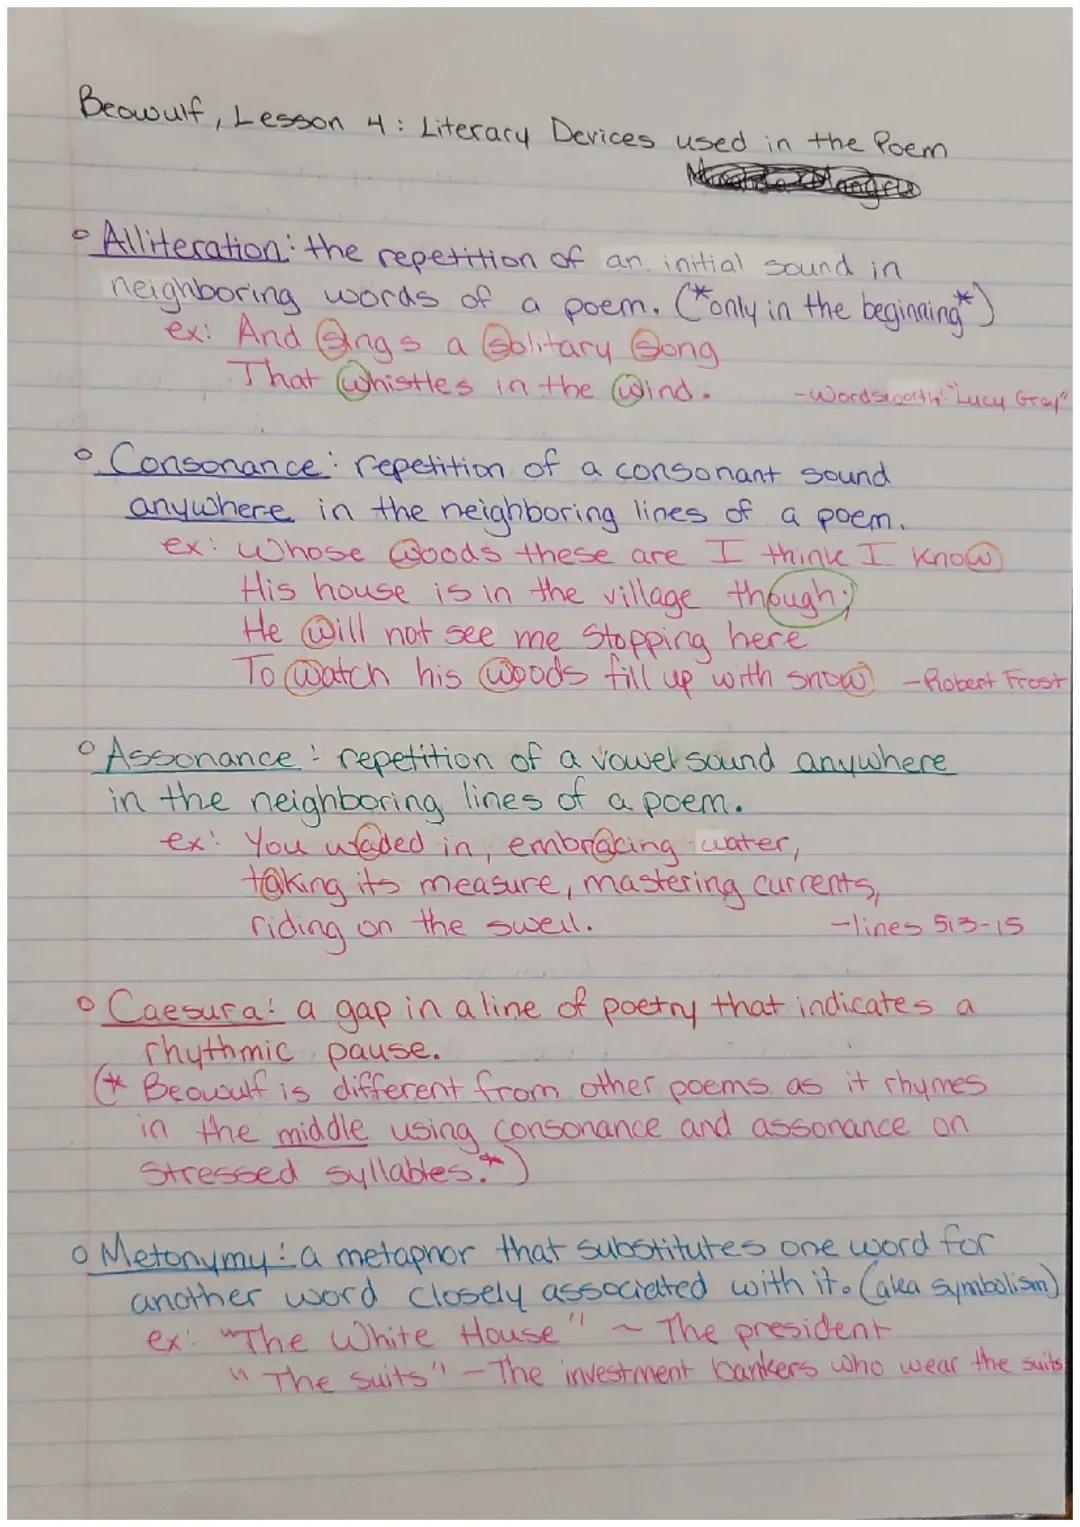 Beowulf, Lesson 4: Literary Devices used in the Poem
Alliteration: the repetition of an initial sound in
neighboring words of a poem. (*only in the beginning*)
ex: And sings a solitary song
That whistles in the wind. -Wordsworth "Lucy Gray"
Consonance: repetition of a consonant sound
anywhere in the neighboring lines of a poem.
ex: Whose woods these are I think I know
His house is in the village though;
He will not see me stopping here
To watch his woods fill up with snow -Robert Frost
Assonance: repetition of a vowel sound anywhere
in the neighboring lines of a poem.
ex: You waded in, embracing water,
taking its measure, mastering currents,
riding on the swell. -lines 513-15
Caesura: a gap in a line of poetry that indicates a
rhythmic pause.
(* Beowulf is different from other poems as it rhymes
in the middle using consonance and assonance on
stressed syllables.*)
Metonymy: a metaphor that substitutes one word for
another word closely associated with it. (aka symbolism)
ex: "The White House" ~ The president
"The suits" - The investment bankers who wear the suits